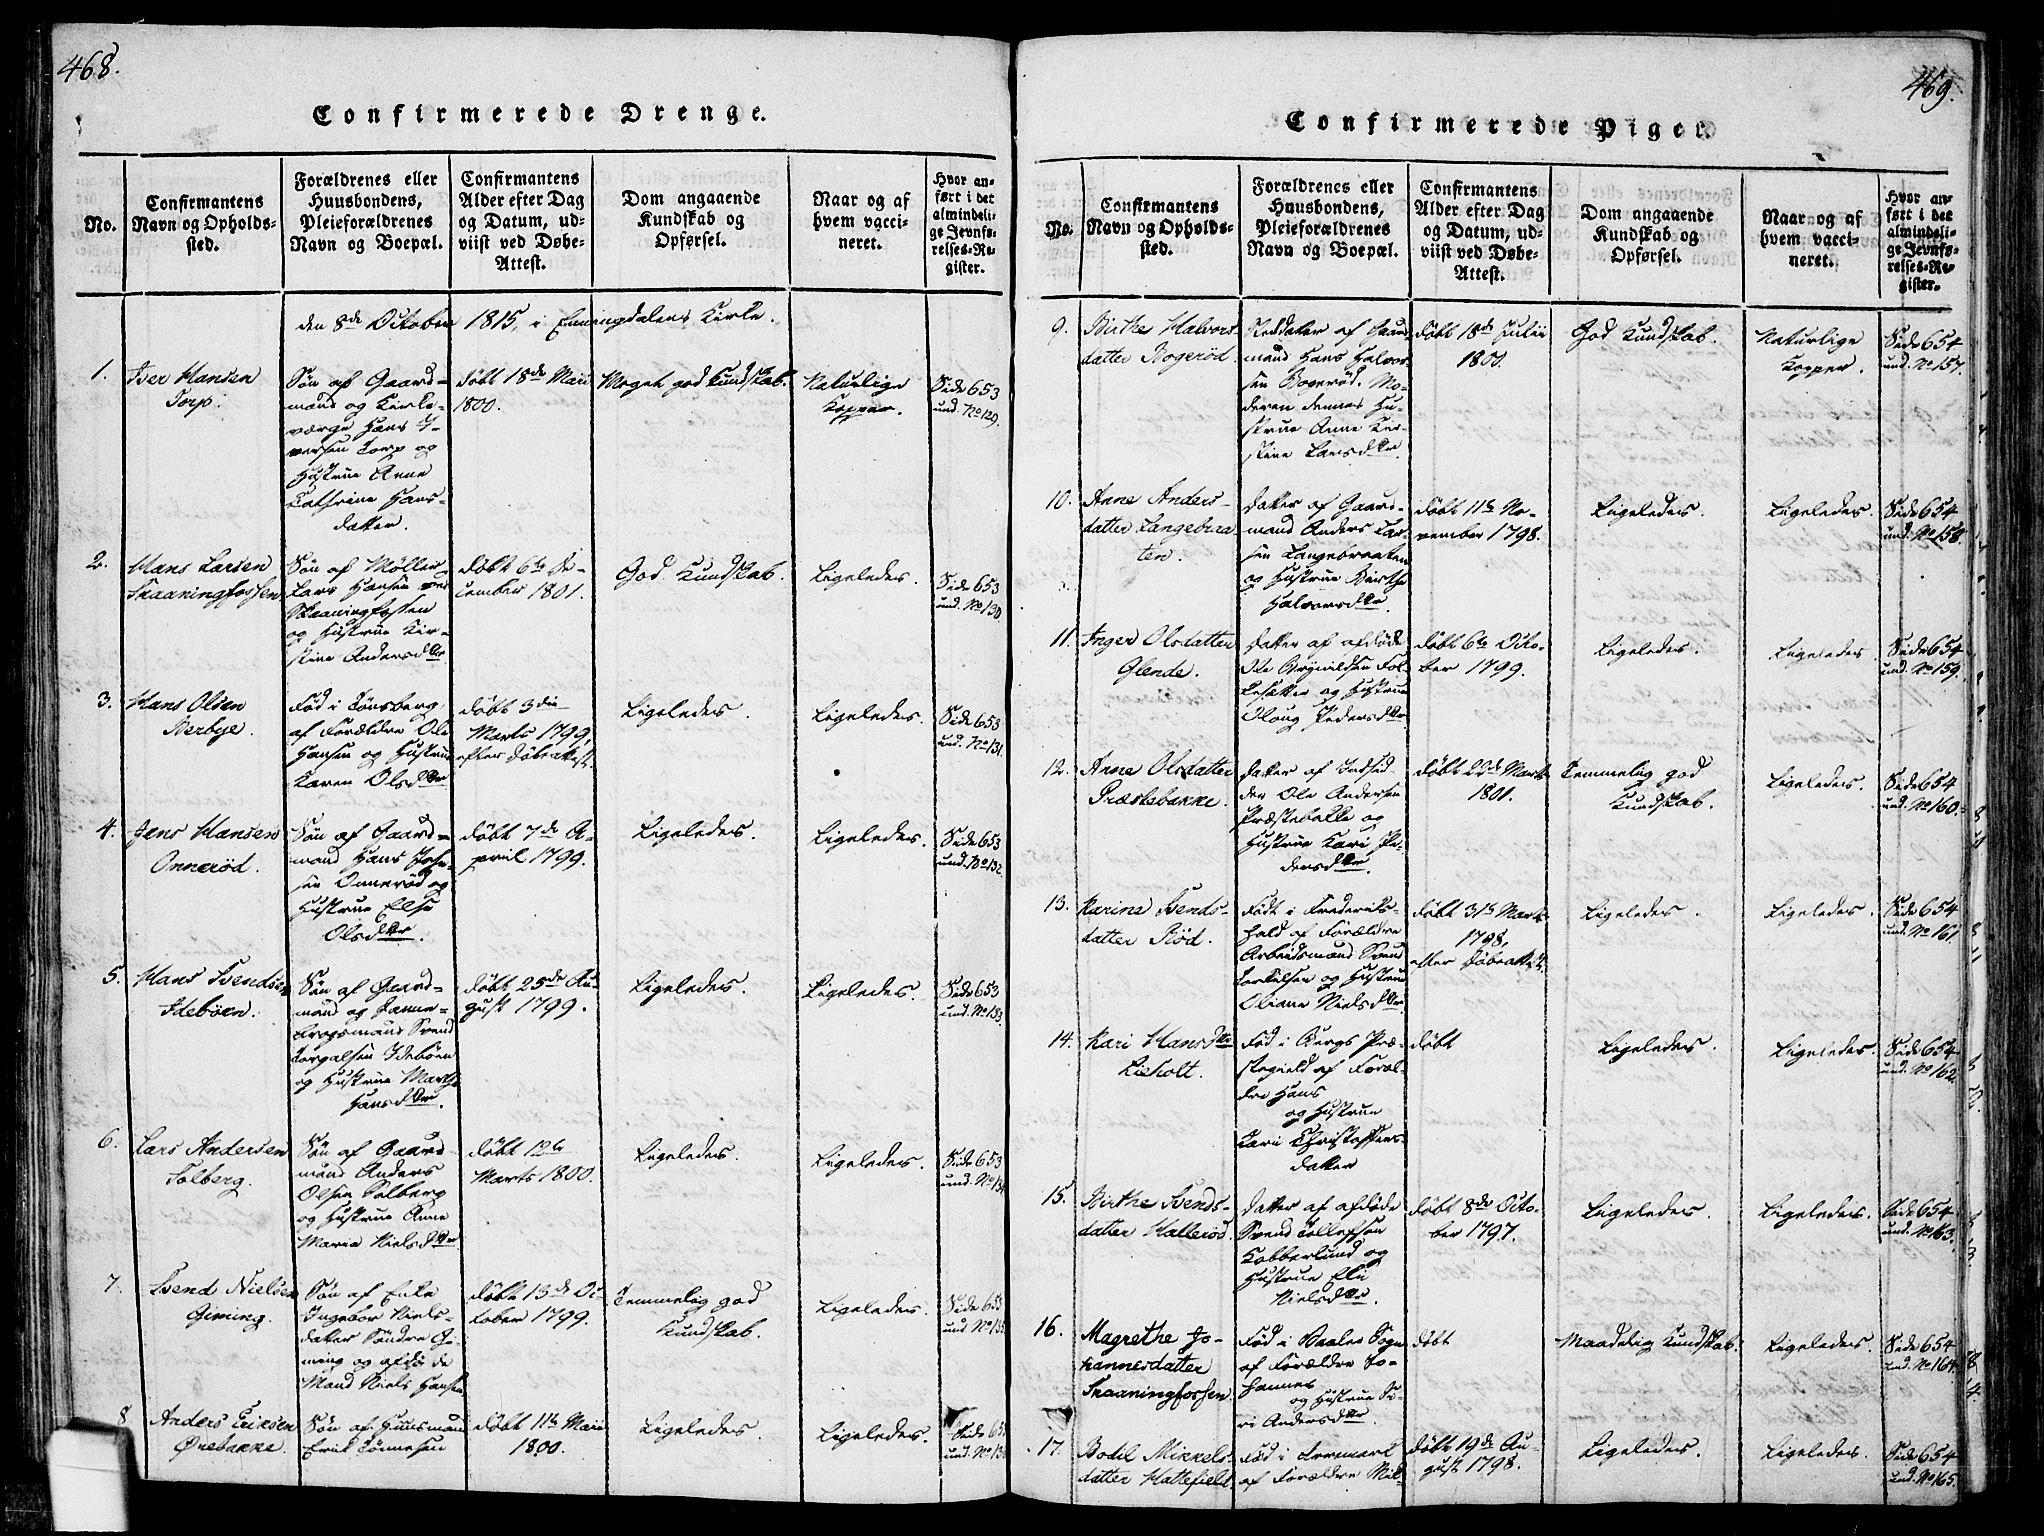 468.
Confirmerede Drenge.
No.
Confirmantens
Navn og Opholds-
sted.
Forældrenes eller
Huusbondens,
Pleieforældrenes
Navn og Boepæl.
Confirmantens
Alder efter Dag
og Datum, ud-
viist ved Døbe-
Attest.
Dom angaaende
Kundskab og
Opførsel.
Naar og af
hvem vacci-
neret.
Hvor an-
ført i det
almindeli-
ge Jevnfø-
relses-Re-
gister.
den 8de October 1815, i Enningdalens Kirke.
1.
Iver Hansen
Torp.
Søn af Gaard-
mand og Kirke-
værge Hans I-
versen Torp og
Hustrue Anne
Cathrine Hans-
datter.
døbt 18de Maii
1800.
Meget god Kundskab.
Naturlige
Kopper.
Side 653
und. No 129.
2.
Hans Larsen
Skaaningfossen
Søn af Møller
Lars Hansen ved
Skaaningfossen
og Hustrue Kir-
stine Andersdtr
døbt 6te De-
cember 1801.
God Kundskab.
Ligeledes.
Side 653
und. No 130.
3.
Hans Olsen
Berbye.
Fød i Tønsberg
af Forældre Ole
Hansen og Hustrue
Karen Olsdtr
døbt 3die
Marts 1799,
efter Døbeattest.
Ligeledes.
Ligeledes.
Side 653
und. No 131.
4.
Jens Hansen
Onnerød.
Søn af Gaard-
mand Hans Jen-
sen Onnerød og
Hustrue Else
Olsdtr.
døbt 7de A-
pril 1799.
Ligeledes.
Ligeledes.
Side 653
und. No 132.
5.
Hans Svendsen
Idebøen.
Søn af Gaard-
mand og Danne-
brogsmand Svend
Torgalsen Idebøen
og Hustrue Marthe
Hansdtr.
døbt 25de Au-
gust 1799.
Ligeledes.
Ligeledes.
Side 653
und. No 133.
6.
Lars Andersen
Solberg.
Søn af Gaard-
mand Anders
Olsen Solberg
og Hustrue Anne
Maria Nielsdtr
døbt 12te
Marts 1800.
Ligeledes.
Ligeledes.
Side 653
und. No 134
7.
Svend Nielsen
Giming.
Søn af Enke
Ingebor Niels-
datter Søndre Gi-
ming og afdøde
Mand Niels Hansen
døbt 13de Oc-
tober 1799.
Temmelig god
Kundskab.
Ligeledes.
Side 653
und No 135
8
Anders Eriksen
Ørebakke.
Søn af Huusmand
Erik Tønnesen
døbt 11te Maii
1800.
Ligeledes.
Ligeledes.
Side 65
und. No 136
469.
Confirmerede Piger.
No.
Confirmantens
Navn og Opholds-
sted.
Forældrenes eller
Huusbondens,
Pleieforældrenes
Navn og Boepæl.
Confirmantens
Alder efter Dag
og Datum, ud-
viist ved Døbe-
Attest.
Dom angaaende
Kundskab og
Opførsel.
Naar og af
hvem vacci-
neret.
Hvor an-
ført i det
almindeli-
ge Jevnfø-
relses-Re-
gister.
9.
Birthe Halvors-
datter Bogerød.
mand Hans Halvor-
sen Bogerød. Mo-
deren dennes Hu-
strue Anne Kir-
stine Larsdtr.
døbt 18de Julii
1801.
God Kundskab.
Naturlige
Kopper.
Side 654
und. No 157.
10.
Anne Anders-
datter Langebraa-
ten.
Datter af Gaard-
mand Anders Lar-
sen Langebraaten
og Hustrue Birthe
Halvorsdtr
døbt 11te No-
vember 1798.
Ligeledes.
Ligeledes.
Side 654
und. No 158.
11.
Inger Olsdatter
Glende.
Datter af afdøde
Ole Brynildsen Fol-
kesætter og Hustrue
Oloug Pedersdtr
døbt 6te Octo-
ber 1799.
Ligeledes.
Ligeledes
Side 654
und. No 159.
12.
Anne Olsdatter
Præstebakke.
Datter af Indsid-
der Ole Andersen
Præstebakke og
Hustrue Kari Pe-
dersdtr.
døbt 22de Marts
1801.
Temmelig god
Kundskab.
Ligeledes.
Side 654
und. No 160.
13.
Karine Svends-
datter Rød.
Født i Frederiks-
hald af Forældre
Arbeidsmand Svend
Torkilsen og Hustrue
Oliane Nielsdtr
døbt 31te Marts
1798,
efter Døbeattest.
Ligeledes.
Ligeledes.
Side 654
und. No 161.
14.
Kari Hansdtr
Lieholt.
Fød i Bergs Præ-
stegield af Foræl-
dre Hans
og Hustrue
Kari Christoffers-
datter
døbt
Ligeledes.
Ligeledes.
Side 654
und. No 162.
15.
Birthe Svends-
datter Hallerød.
Datter af afdøde
Svend Tollefsen
Kobberlund og
Hustrue Eli
Nielsdtr.
døbt 8de Octo-
ber 1797.
Ligeledes.
Ligeledes.
Side 654
und. No 163.
16.
Magrethe Jo-
hannesdatter
Skaaningfossen
Fød i Baales Sogn
af Forældre Jo-
hannes
og Hustrue Si-
ri Andersdtr
døbt
Maadelig Kundskab.
Ligeledes.
Side 654
und. No 164.
17.
Bodil Mikkels-
datter Hattefield.
Fød i Arremark
af Forældre Mik-
døbt 19de Au-
gust 1798.
Ligeledes.
Ligeledes.
Side 654
und. No 165.